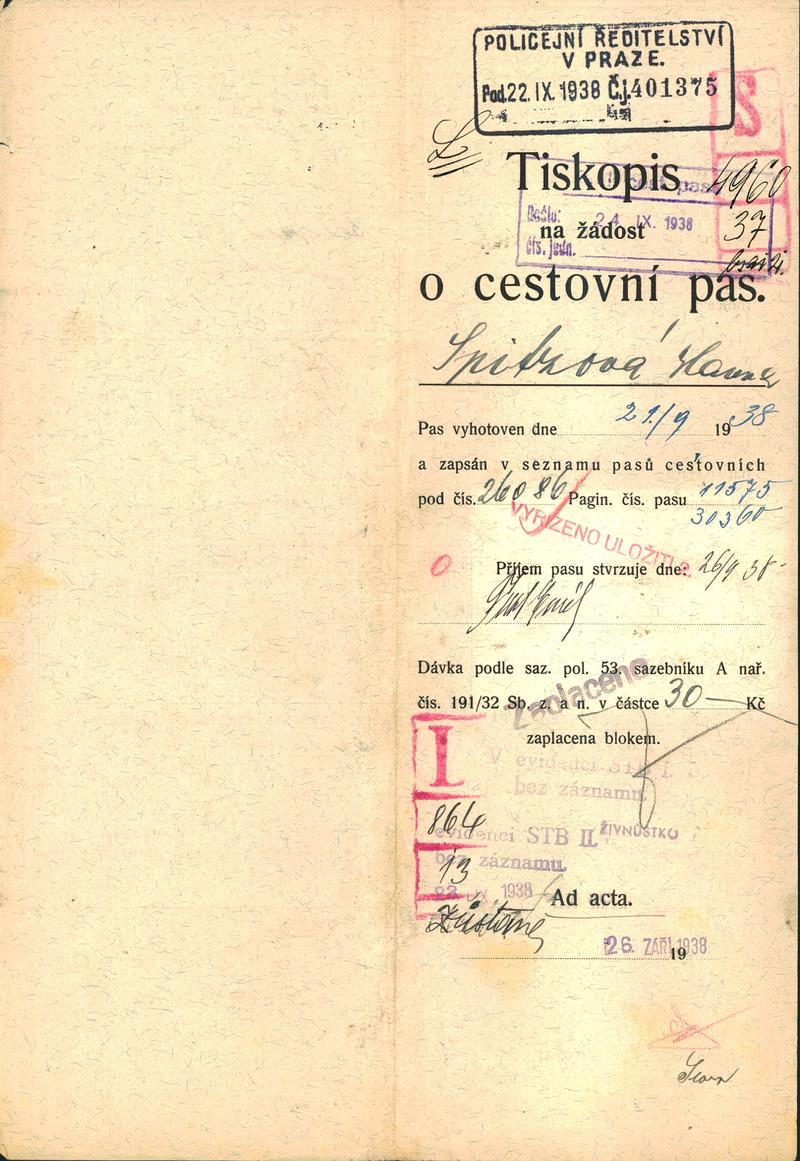 POLICEJNÍ ŘEDITELSTVÍ
V PRAZE.
Pod. 22. IX. 1938 Č.j. 401375
S
Tiskopis
4960
Došlo: 24. IX. 1938
37
na žádost
čís. jedn.
o cestovní pas.
Spitzová Hanna
Pas vyhotoven dne 21/9 1938
a zapsán v seznamu pasů cestovních
pod čís. 26086 Pagin. čís. pasu 11575
30360
VYŘÍZENO ULOŽITI
Příjem pasu stvrzuje dne: 26/9 38
Dávka podle saz. pol. 53. sazebníku A nař.
Zaplaceno
čís. 191/32 Sb. z. a n. v částce 30 Kč
zaplacena blokem.
I
V evidenci STB I.
bez záznamu.
864
evidenci STB II. ŽIVNOSTKO
bez záznamu.
13
23. IX. 1938
Ad acta.
26. ZÁŘÍ 1938
19